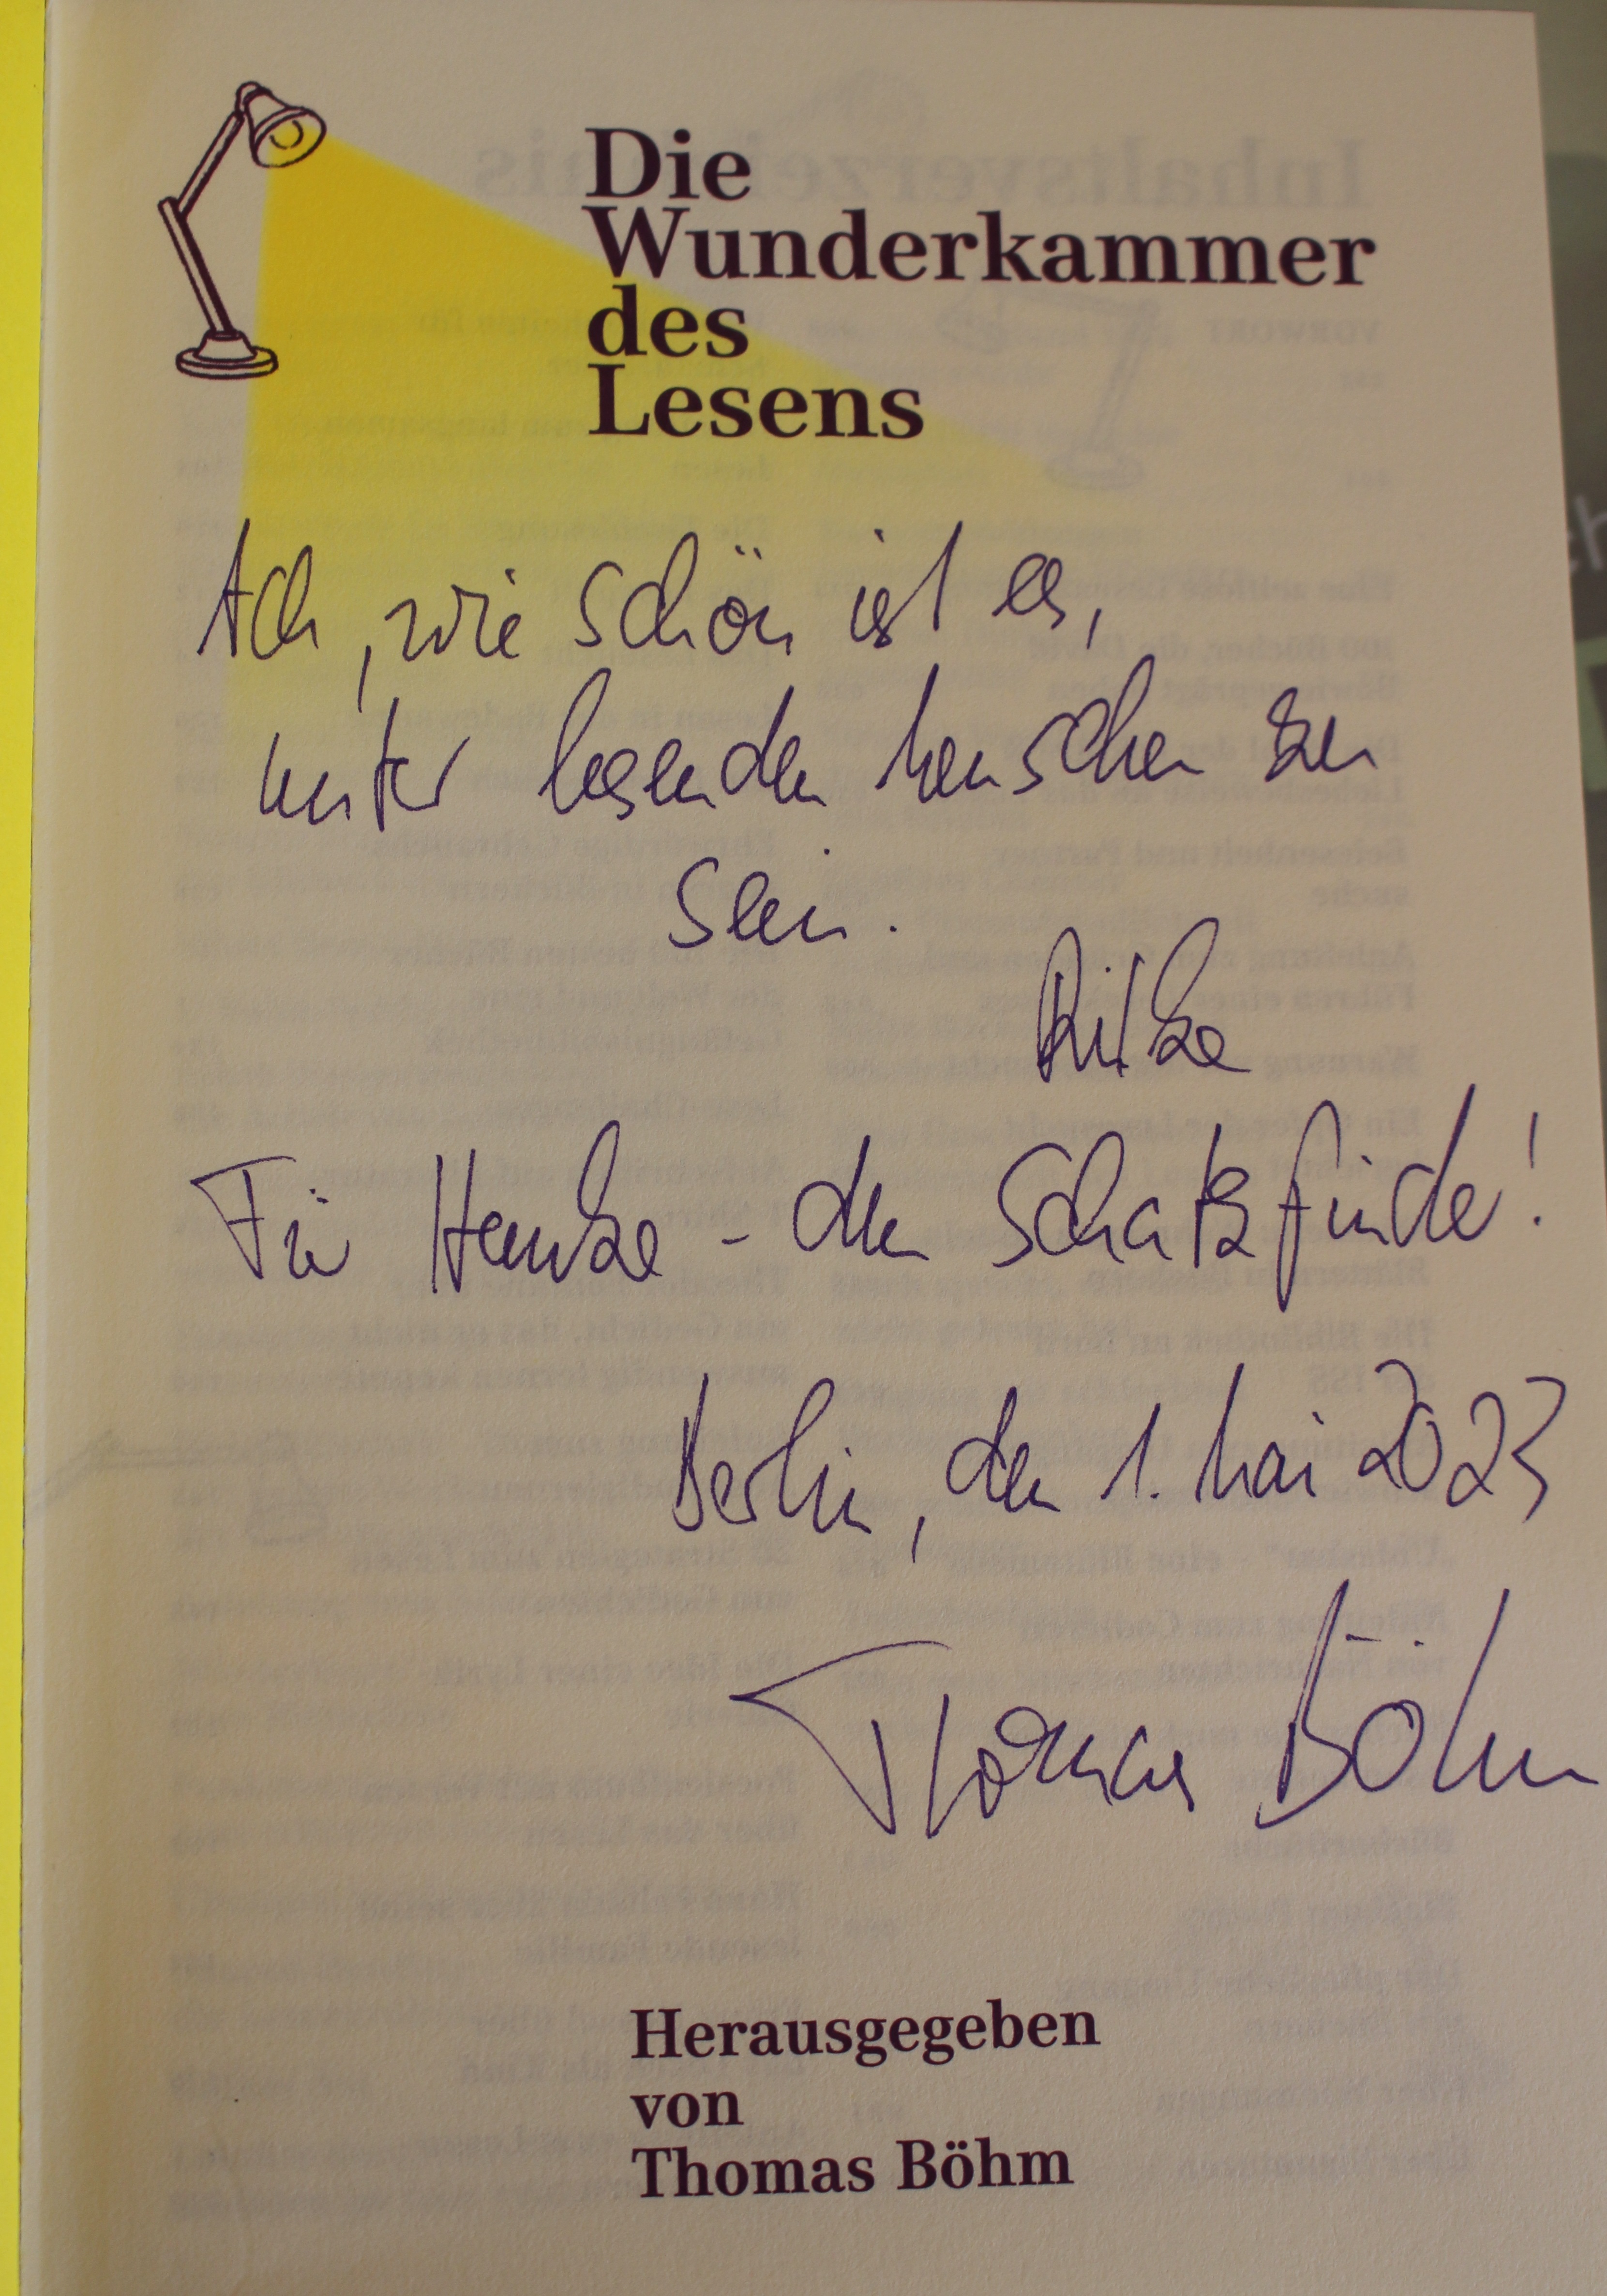 Die
Wunderkammer
des
Lesens
Ach, wie schön ist es,
unter lesenden Menschen zu
sein.
Rilke
Für Hauke - den Schatzfinder!
Berlin, den 1. Mai 2023
Thomas Böhm
Herausgegeben
von
Thomas Böhm